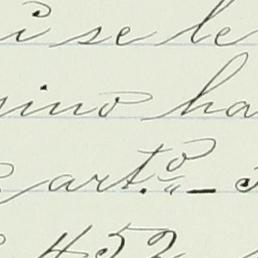 i se le
sino ha
art.º -
452